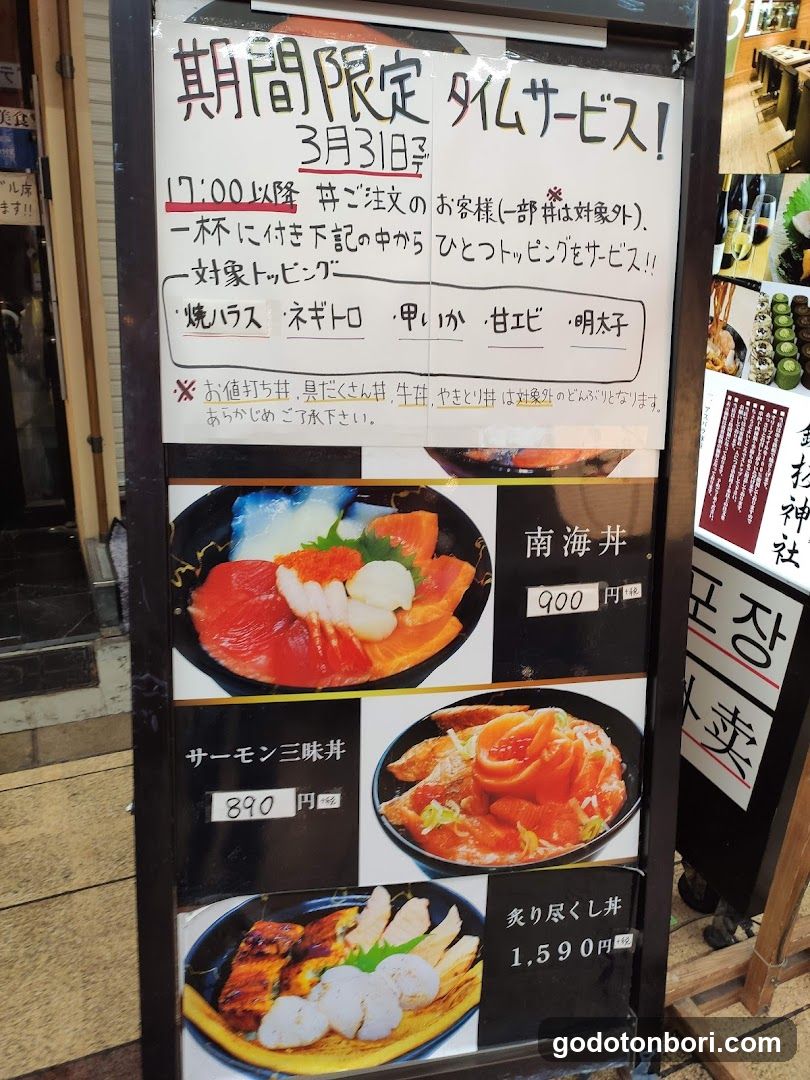 期間限定 タイムサービス!
3月31日マデ
17:00以降 丼ご注文のお客様(一部丼は対象外)、
※
一杯に付き下記の中から ひとつトッピングをサービス!!
対象トッピング
・焼ハラス ・ネギトロ ・甲いか ・甘エビ ・明太子
※ お値打ち丼、具だくさん丼、牛丼、やきとり丼 は対象外のどんぶりとなります。
あらかじめご了承下さい。
南海丼
900円+税
サーモン三昧丼
890円+税
炙り尽くし丼
1,590円+税
美食
ます!!
神社
포장
外卖
godotonbori.com